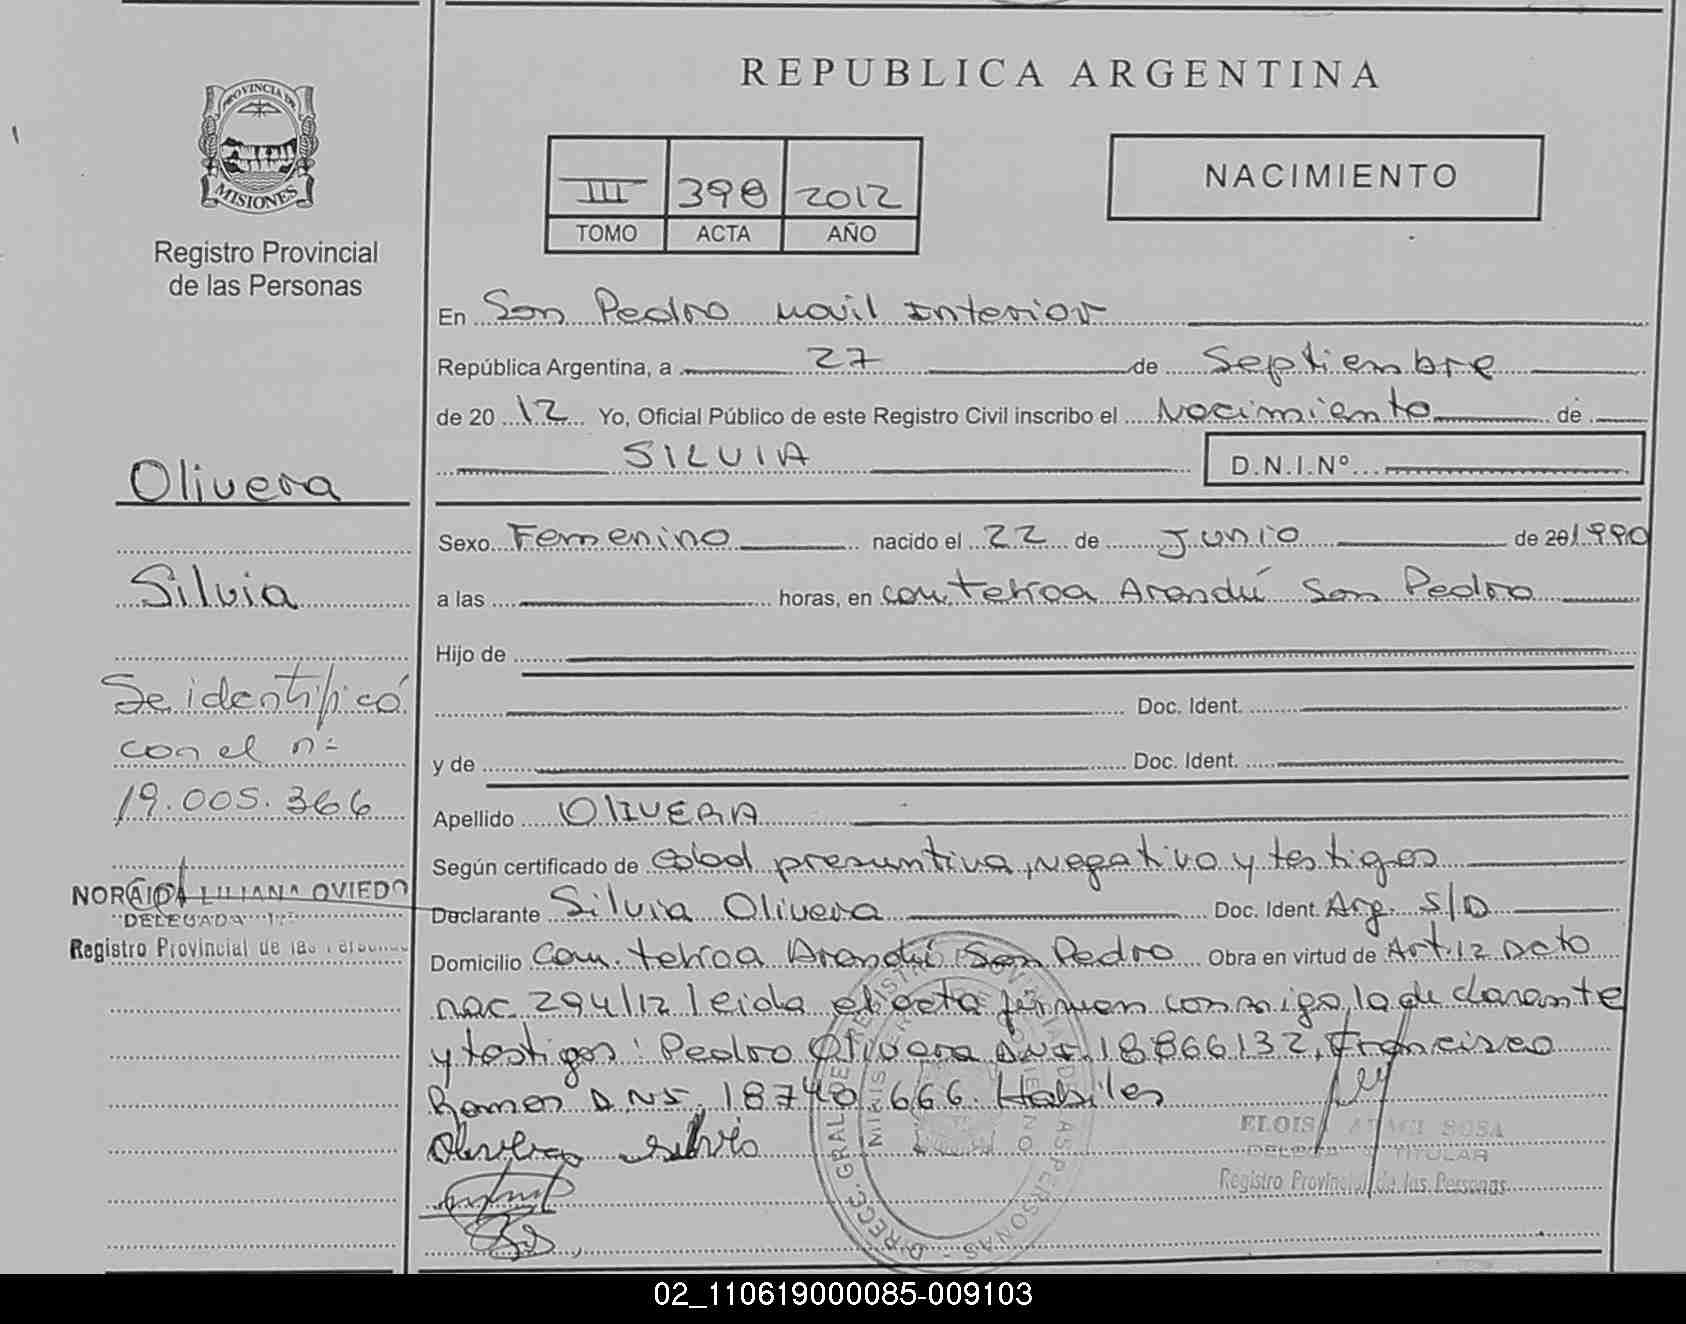 REPUBLICA ARGENTINA
PROVINCIA DE
MISIONES
Registro Provincial
de las Personas
III 398 2012
TOMO ACTA AÑO
NACIMIENTO
En San Pedro movil Interior
República Argentina, a 27 de Septiembre
de 20 12 Yo, Oficial Público de este Registro Civil inscribo el Nacimiento de
SILVIA D.N.I.Nº
Olivera
Silvia
Se identificó
con el nº
19.005.366
NORAIDA LILIANA OVIEDO
DELEGADA
Registro Provincial de las Personas
Sexo Femenino nacido el 22 de Junio de 201990
a las horas, en com. tekoa Arandú San Pedro
Hijo de
Doc. Ident.
y de Doc. Ident.
Apellido OlIVERA
Según certificado de edad presuntiva, negativo y testigos
Declarante Silvia Olivera Doc. Ident. Arg. S/D
Domicilio Com. tekoa Arandú San Pedro Obra en virtud de Art.12 Dcto
nac 294/12 leida el acta firman conmigo, la declarante
y testigos: Pedro Olivera DNI. 18866132, Francisco
Ramos DNI. 18740 666. Habiles
Olivera Silvia
SOSA
TITULAR
Registro Provincial de las Personas
02_110619000085-009103